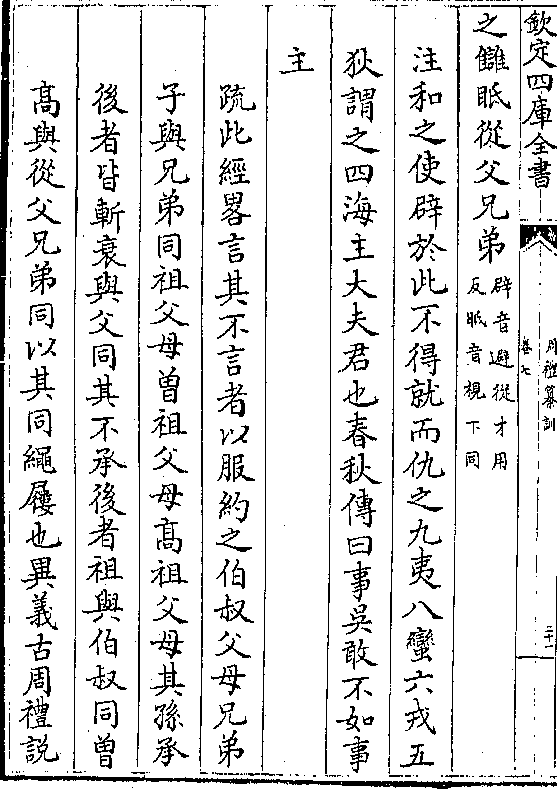 欽定四庫全書
周禮纂訓
卷七
三十一
之讎眡從父兄弟
辟音避從才用
反眡音視下同
注和之使辟於此不得就而仇之九夷八蠻六戎五
狄謂之四海主大夫君也春秋傳曰事吳敢不如事
主
疏此經畧言其不言者以服約之伯叔父母兄弟
子與兄弟同祖父母曾祖父母高祖父母其孫承
後者皆斬衰與父同其不承後者祖與伯叔同曾
高與從父兄弟同以其同繩屨也異義古周禮説